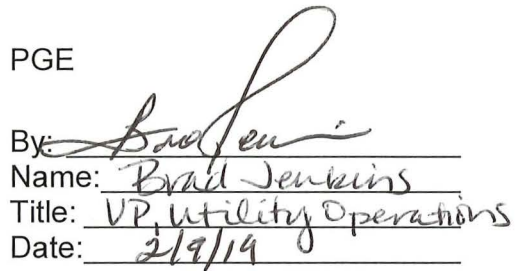 PGE
By: Brad Jen
Name: Brad Jenkins
Title: VP, Utility Operations
Date: 2/9/19